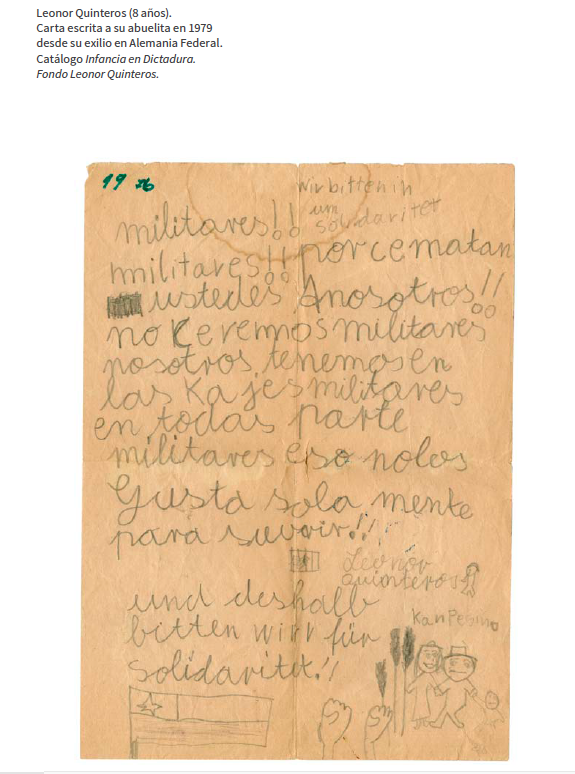 Leonor Quinteros (8 años).
Carta escrita a su abuelita en 1979
desde su exilio en Alemania Federal.
Catálogo Infancia en Dictadura.
Fondo Leonor Quinteros.
19
wir bitten in
um
solidaritet
militares!!
militares!! porce matan
ustedes Anosotros!!
no Keremos militares
nosotros tenemos en
las Kajes militares
en todas parte
militares eso nolos
Gusta sola mente
para
Leonor
Quinteros
und deshalb
bitten wirr für
solidaritet!!
Kanpesino